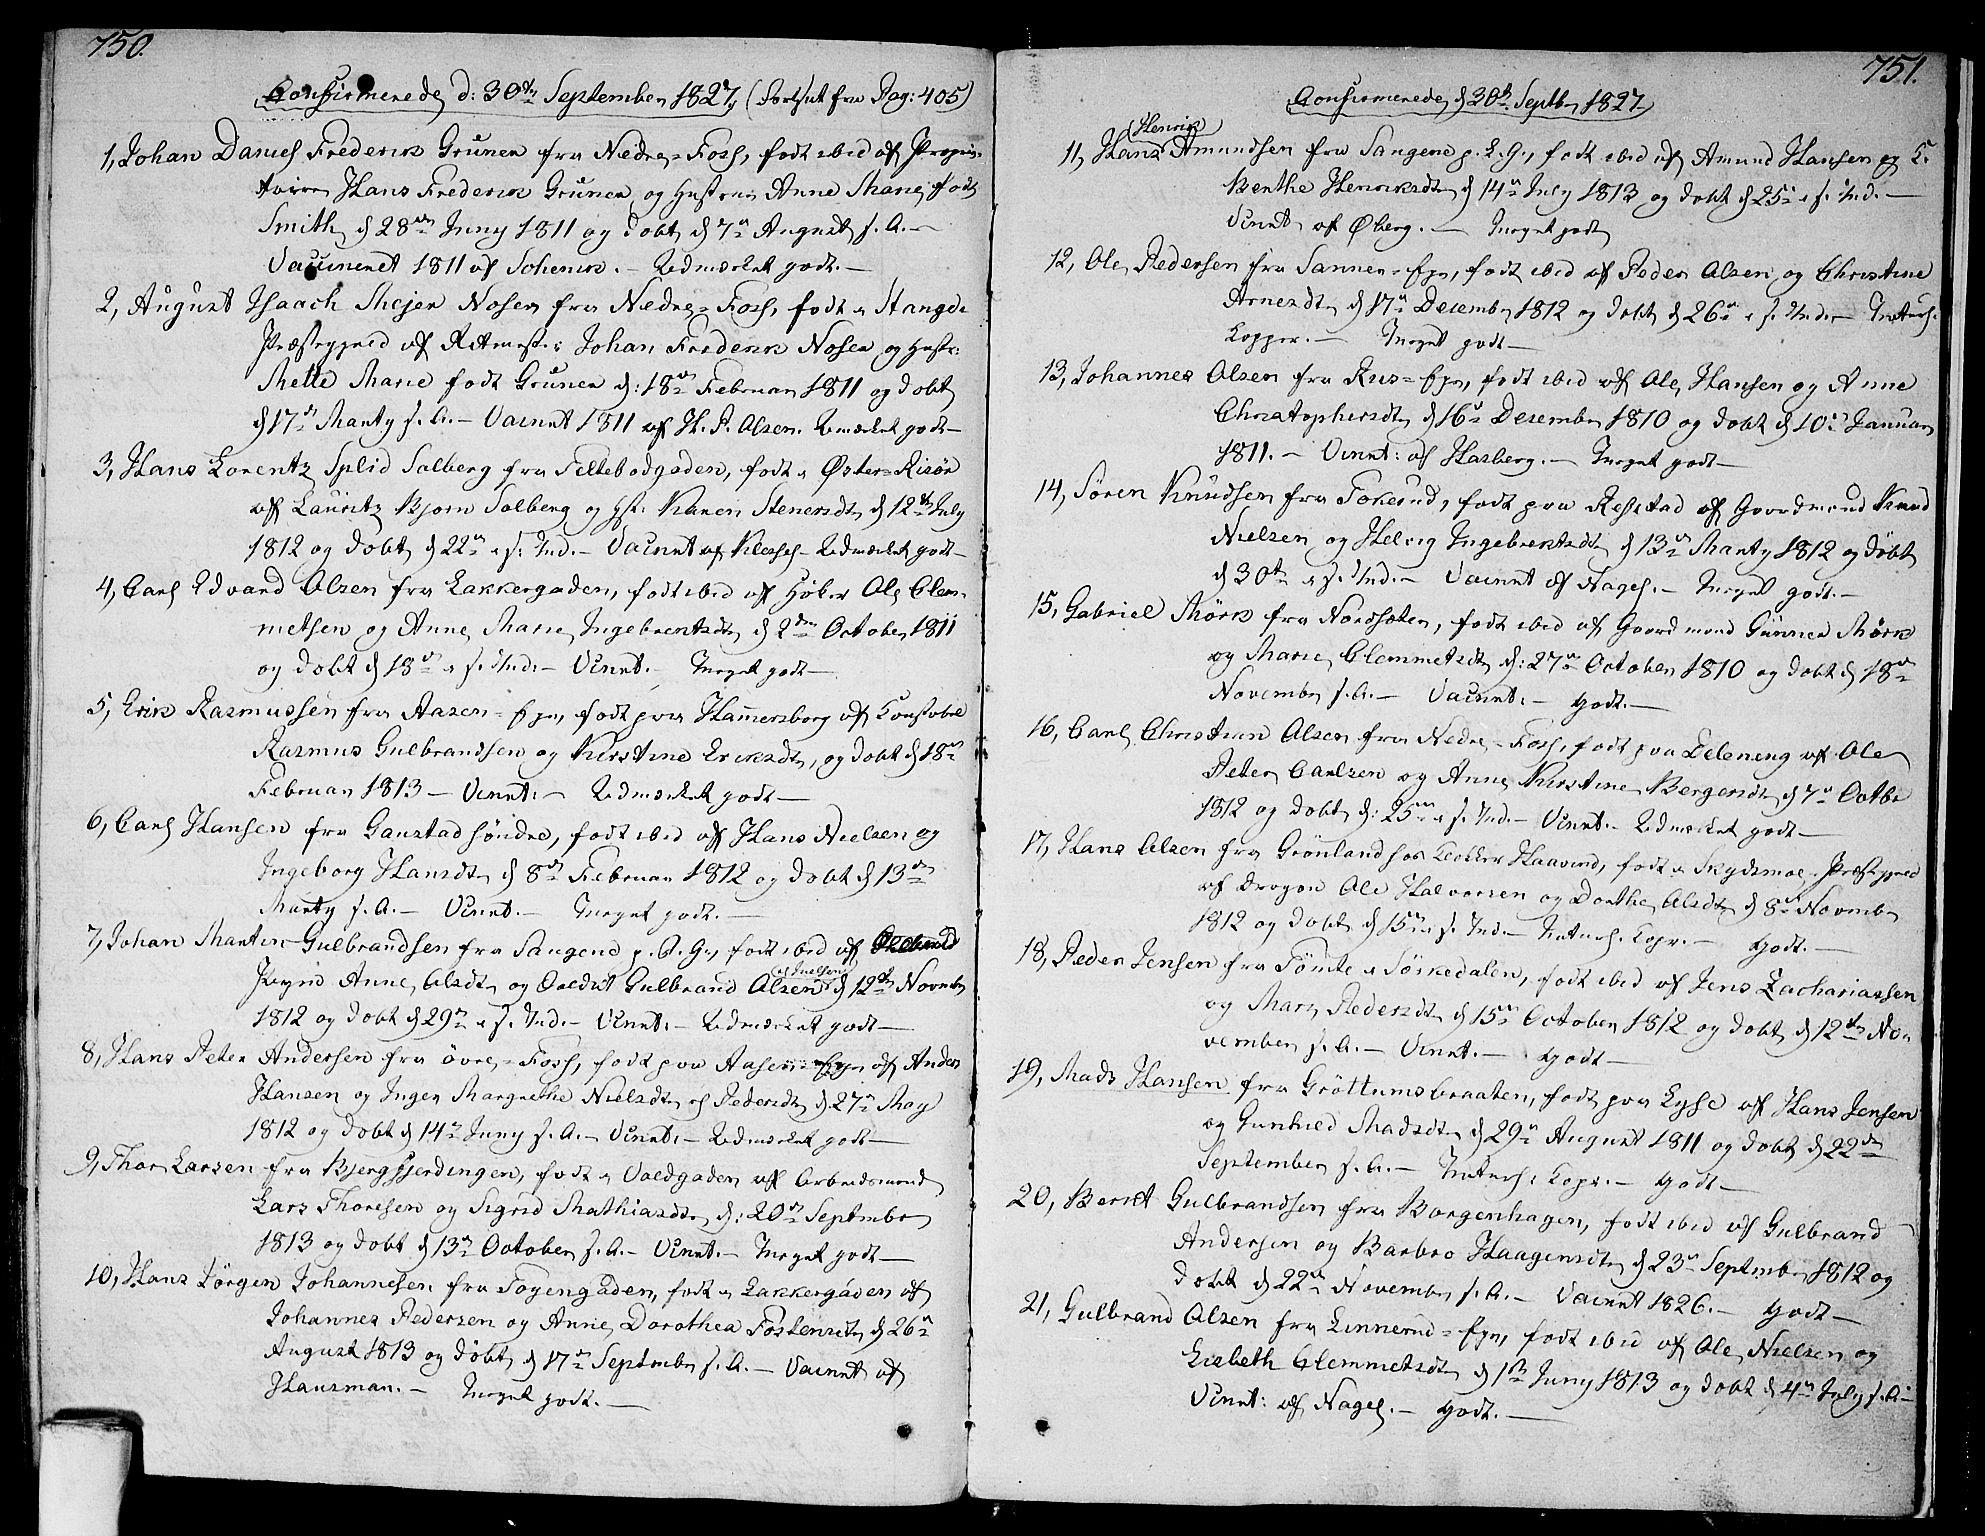 750.
Confirmerede d: 30te September 1827, (Fortsat fra Pag: 405)
1, Johan Daniel Frederik Gruner fra Nedre-Foss, født ibid af Proprie-
tairen Hans Frederik Gruner og Hustrue Anne Marie født
Smith d 28de Juny 1811 og døbt d 7de August s. A. —
Vaccineret 1811 af Schenck. — Udmærket godt. —
2, August Isaach Mejer Nosen fra Nedre-Foss, født i Stange
Præstegjeld af Ritmester Johan Frederik Nosen og Hustr:
Mette Marie født Gruner d: 18de Februar 1811 og døbt
d 17de Marty s. A. — Vaccnt 1811 af H. P. Olsen. Udmærket godt —
3, Hans Lorentz Splid Solberg fra Feltebodgaden, født i Øster-Risør
af Lauritz Bjørn Solberg og Hst: Karen Stenersdtr d 12te July
1812 og døbt d 22de s. Md. — Vaccnt af — Udmærket godt —
4, Carl Edvard Olsen fra Lakkergaden, født ibid af Høker Ole Clem-
metsen og Anne Marie Ingebrentsdtr d 2den October 1811
og døbt d 13de s. Md. — Vccnt. — Meget godt —
5, Erik Rasmussen fra Aasen-Eje, født paa Hammersborg af Konstabel
Rasmus Gulbrandsen og Kirstine Eriksdtr, og døbt d 18de
Februar 1813 — Vccnt. — Udmærket godt —
6, Carl Hansen fra Gaustad søndre, født ibid af Hans Nielsen og
Ingeborg Hansdtr d 8de Februar 1812 og døbt d 13de
Marty s. A. — Vccnt. — Meget godt. —
7, Johan Martin Gulbrandsen fra Sangene p. A. G., født ibid af
Pige Anne Olsdtr og Soldat Gulbrand Olsen d 12te Novmbr
1812 og døbt d 29de s. Md. — Vccnt. — Udmærket godt —
8, Hans Peter Andersen fra øvre-Foss, født paa Aasen-Eje af Anders
Hansen og Inger Margrethe Nielsdtr el Pedersdtr d 27de May
1812 og døbt d 14de Juny s. A. — Vccnt. — Udmærket godt —
9, Thor Larsen fra Bjergfjerdingen, født i Voldgaden af Arbeidsmand
Lars Thoresen og Sigrid Mathiasdtr d: 20de Septmbr
1813 og døbt d 13de October s. A. — Vccnt. — Meget godt —
10, Hans Jørgen Johannesen fra Tøyengaden, født i Lakkergaden af
Johannes Pedersen og Anne Dorothea Tostensdtr d 26de
August 1813 og døbt d 17de Septmbr s. A. — Vaccnt af
Hausman. — Meget godt. —
751.
Confirmerede d 30te Septbr 1827
(Henrik)
11, Hans Amundsen fra Sangene p. L. G., født ibid af Amund Hansen og
Berthe Henriksdtr d 14de July 1813 og døbt d 25de s. Md. —
Vccnt af Øberg. — Meget godt
12, Ole Pedersen fra Sannen-Eje, født ibid af Peder Olsen og Christine
Arnesdtr d 17de Decembr 1812 og døbt d 26de s. Md. — Naturl:
Kopper. — Meget godt —
13, Johannes Olsen fra Ruus-Eje, født ibid af Ole Hansen og Anne
Christophersdtr d 16de Decembr 1810 og døbt d 10de Januar
1811. — Vccnt: af Hasberg. — Meget godt —
14, Søren Knudsen fra Fokerud, født paa Refstad af Gaardmand Knud
Nielsen og Helvig Ingebrentsdtr d 13de Marty 1812 og døbt
d 30te s. Md. — Vaccnt af Nagel. — Meget godt. —
15, Gabriel Mørk fra Nordsæter, født ibid af Gaardmand Gunner Mørk
og Marie Clemmetsdtr d: 27de October 1810 og døbt d 18de
Novembr s. A. — Vaccnt. — godt. —
16, Carl Christian Olsen fra Nedre-Foss, født paa Deleneng af Ole
Peter Carlsen og Anne Kirstine Bergersdtr d 7de Octbr
1812 og døbt d: 25de s. Md. — Vccnt. — Udmærket godt —
17, Hans Olsen fra Grønland hos Haavind, født i Skydsmoe Præstegjeld
af Dragon Ole Halvorsen og Dorthe Olsdtr d 8de Novmbr
1812 og døbt d 15de s. Md. — Naturl. Kopr. — godt. —
18, Peder Jensen fra Tømte i Sørkedalen, født ibid af Jens Zachariassen
og Mari Pedersdtr d 15de October 1812 og døbt d 12te No-
vember s. A. — Vccnt. — godt —
19, Mads Hansen fra Grøttumsbraaten, født paa Lysse af Hans Jensen
og Gunhild Madsdtr d 29de August 1811 og døbt d 22de
September s. A. — Naturl: Kopr. — godt —
20, Bernt Gulbrandsen fra Borgenhagen, født ibid af Gulbrand
Andersen og Barbro Haagensdtr d 23de Septmbr 1812 og
døbt d 22de Novembr s. A. — Vaccnt 1826. — godt —
21, Gulbrand Olsen fra Linnerud-Eje, født ibid af Ole Nielsen og
Lisbeth Clemmetsdtr d 1ste Juny 1813 og døbt d 4de July s. A. —
Vccnt: af Nagel. — godt. —